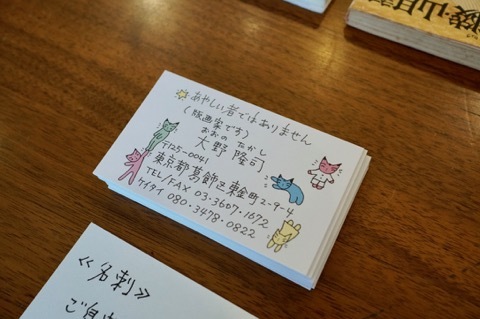 あやしい者ではありません
(版画家です)
おおの たかし
大野 隆司
〒125-0041
東京都葛飾区東金町2-9-4
TEL/FAX 03・3607・1672
ケイタイ 080・3478・0822
《名刺》
ご自
山月記